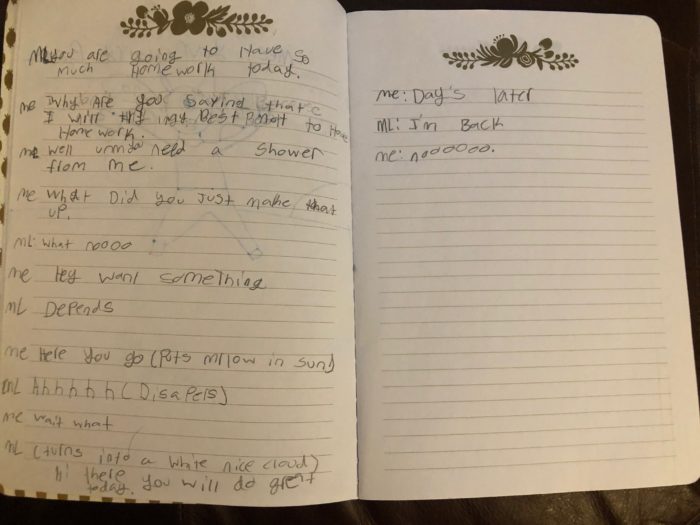 ML you are going to Have so
much Homework today.
me Why Are you Saying that
I will try my Best Point to Have
Homework.
ML Well need a Shower
from me.
me What Did you Just make that
up.
ML: What noooo
me Hey want something
ML Depends
me Here you go (Puts mllow in sun)
ML hhhhhh (Disapers)
me wait what
ML (turns into a white nice cloud)
Hi there
today. You will do
me: Day's later
ML: I'm Back
me: noooooo.